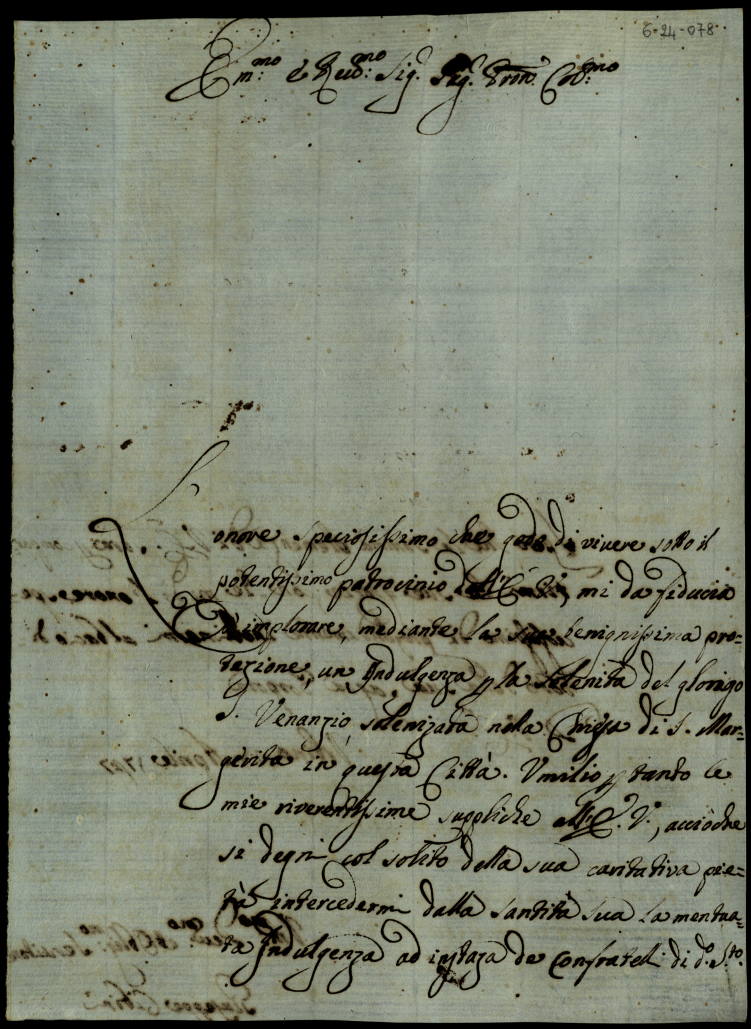 6-24-078
Em:mo e Reud:mo Sig. Sig. Pron. Col:mo
L'onore speciosissimo che gode di vivere sotto il
potentissimo patrocinio dell'E, mi da fiducia
d'implorare, mediante la sua benignissima pro=
tezione, un Indulgenza p la solenità del glorioso
S. Venanzio, solenizata nella Chiesa di S. Mar=
gerita in questa Città. Umilio p tanto le
mie riverentissime suppliche all'E. V., acciòche
si degni col solito della sua caritativa pie=
tà intercedermi dalla santità sua la mentua=
ta Indulgenza ad instaza de Confratelli di d.o S.to